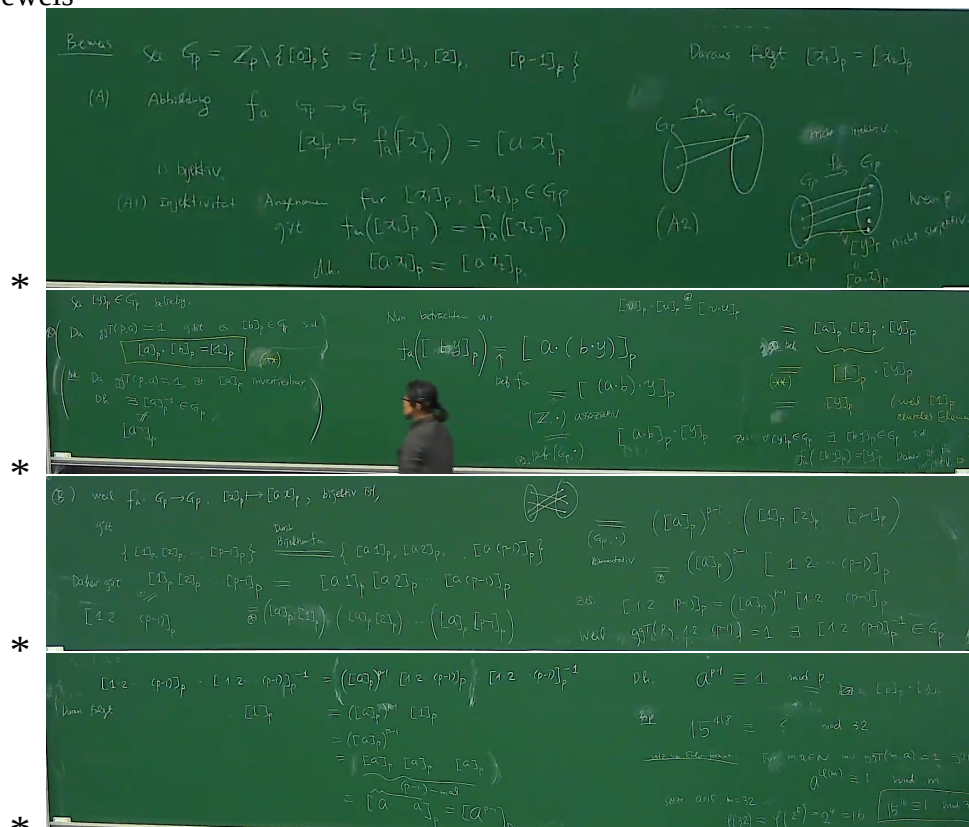 Beweis
Sei G_p = Z_p \ {[0]_p} = {[1]_p, [2]_p, [p-1]_p}
(A) Abbildung f_a G_p → G_p
[x]_p ↦ f_a([x]_p) = [a·x]_p
is bijektiv.
(A1) Injektivität Angenomen für [x_1]_p, [x_2]_p ∈ G_p
gilt f_a([x_1]_p) = f_a([x_2]_p)
d.h. [a·x_1]_p = [a·x_2]_p.
Daraus folgt [x_1]_p = [x_2]_p
G_p f_a G_p
nicht injektiv.
G_p f_a G_p
(A2)
nicht surjektiv
[x]_p [y]_p
=
[a·x]_p
*
Sei [y]_p ∈ G_p beliebig.
Da ggT(p,a) = 1 gibt es [b]_p ∈ G_p sd
[a]_p · [b]_p = [1]_p (**)
Da ggT(p,a) = 1, ist [a]_p invertierbar
Dh ∃ [a]_p^{-1} ∈ G_p
[a^{-1}]_p
Nun betrachten wir
f_a([b·y]_p) = [a·(b·y)]_p
Def f_a
= [(a·b)·y]_p
(Z, ·) assoziativ
= [a·b]_p · [y]_p
= [a]_p · [b]_p · [y]_p
(**) = [1]_p · [y]_p
= [y]_p (weil [1]_p
neutrales Element
∀[y]_p ∈ G_p ∃ [b]_p ∈ G_p sd
f_a([by]_p) = [y]_p Daher ist
*
(B) weil f_a: G_p → G_p, [x]_p ↦ [a x]_p, bijektiv ist,
gilt
{[1]_p, [2]_p, ..., [p-1]_p} = {[a 1]_p, [a 2]_p, , [a (p-1)]_p}
Durch
Bijektion f_a
Daher gilt [1]_p [2]_p ... [p-1]_p = [a 1]_p [a 2]_p ... [a (p-1)]_p
[1·2 (p-1)]_p = ([a]_p [1]_p) ([a]_p [2]_p) ... ([a]_p [p-1]_p)
= ([a]_p)^{p-1} · ([1]_p [2]_p ... [p-1]_p)
(G_p, ·)
kommutativ
= ([a]_p)^{p-1} [1·2 ... (p-1)]_p
[1·2 (p-1)]_p = ([a]_p)^{p-1} [1·2 (p-1)]_p
weil ggT(p, 1·2 (p-1)) = 1 ∃ [1·2 (p-1)]_p^{-1} ∈ G_p
*
[1·2 ... (p-1)]_p · [1·2 ... (p-1)]_p^{-1} = (([a]_p)^{p-1} [1·2 ... (p-1)]_p) [1·2 ... (p-1)]_p^{-1}
Daraus folgt [1]_p = ([a]_p)^{p-1} [1]_p
= ([a]_p)^{p-1}
= [a]_p [a]_p ... [a]_p
(p-1)-mal
= [a a]_p = [a^{p-1}]_p
D.h. a^{p-1} ≡ 1 mod p.
Bsp 15^{418} = ? mod 32
Für m, a ∈ N mit ggT(m, a) = 1 gilt
a^{φ(m)} ≡ 1 mod m
Setze a=15 m=32
φ(32) = φ(2^5) = 2^4 = 16 15^{16} ≡ 1 mod
*